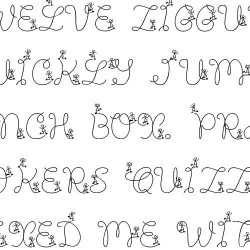 WELVE ZIGGU
UICKLY JUM
NCH BOX. PR
OKERS QUIZZ
XED ME WIT